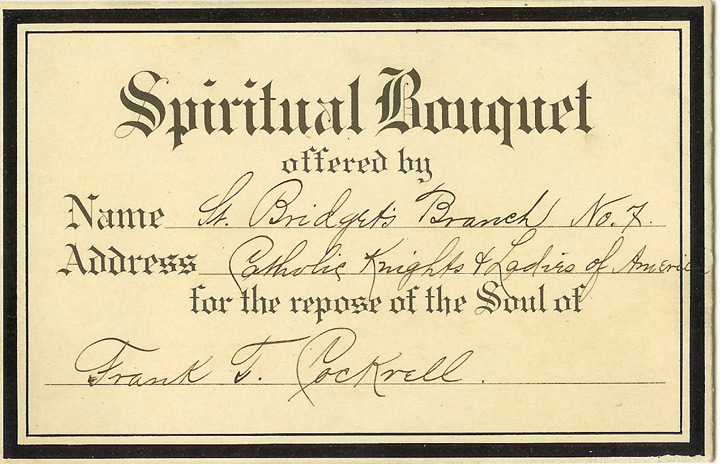 Spiritual Bouquet
offered by
Name St. Bridget's Branch No. 7.
Address Catholic Knights & Ladies of America
for the repose of the Soul of
Frank T. Cockrell.